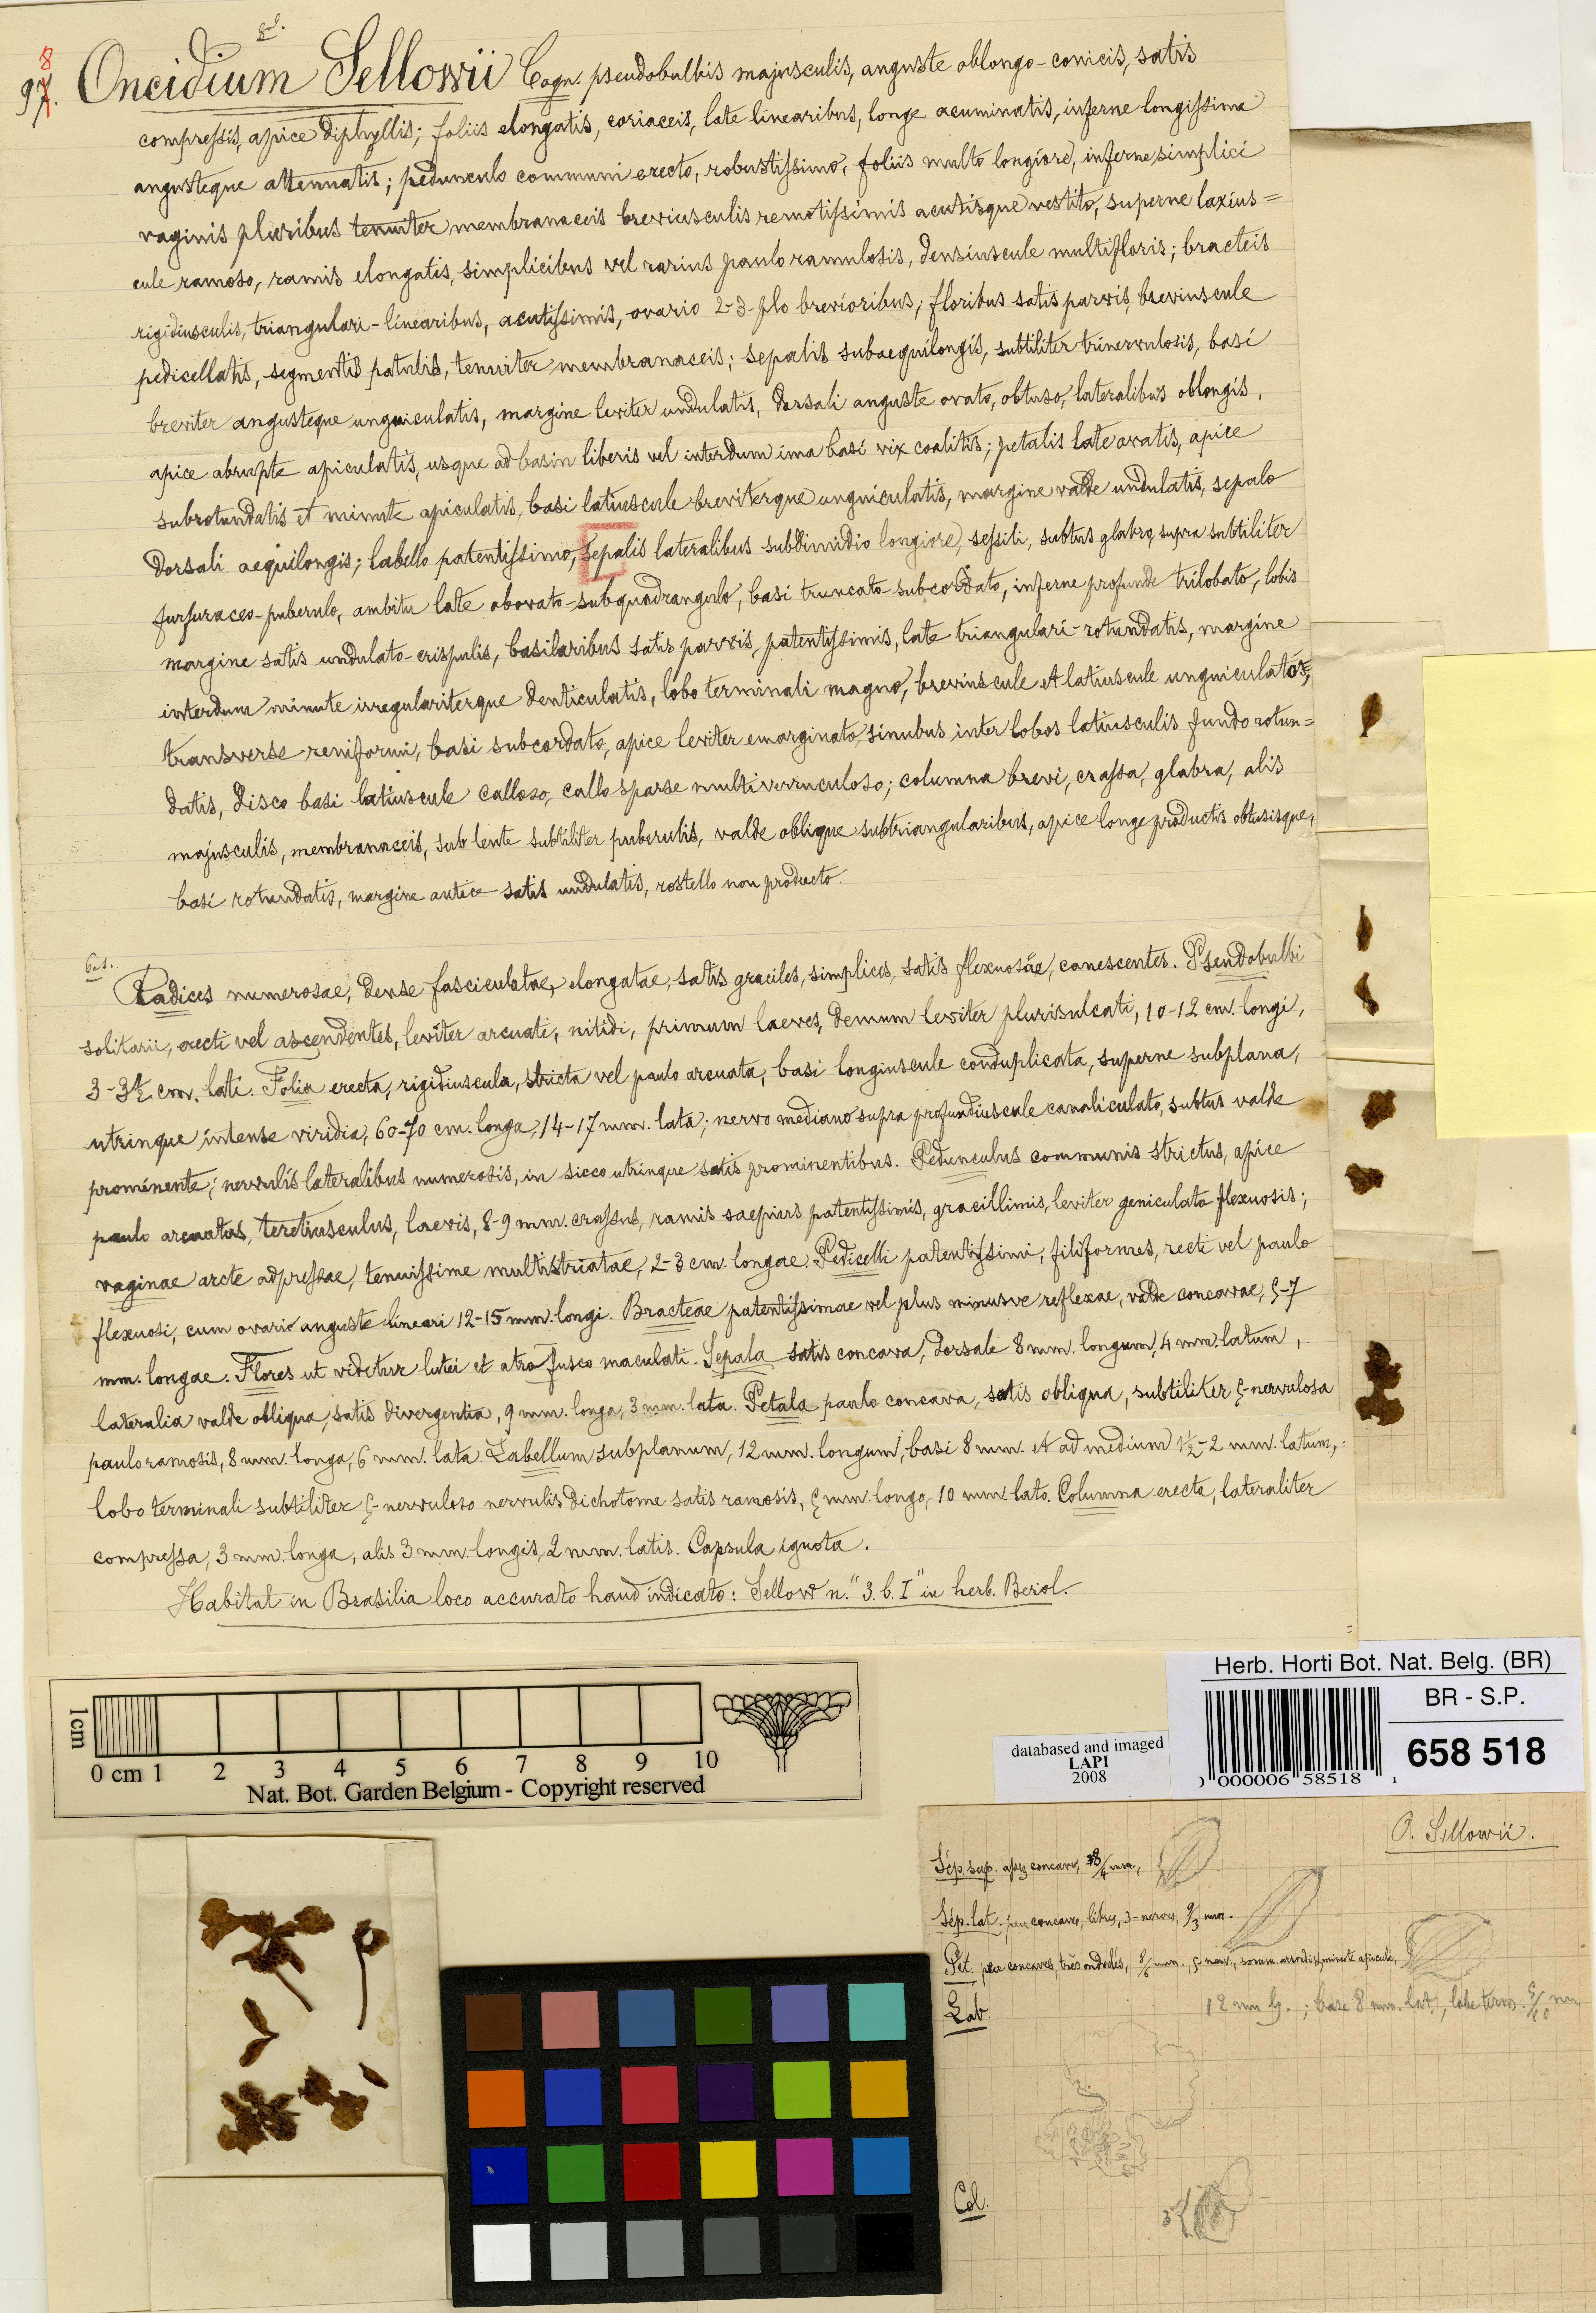 98. Oncidium Sellowii Cogn. pseudobulbis majusculis, anguste oblongo-conicis, satis
compressis, apice diphyllis; foliis elongatis, coriaceis, late linearibus, longe acuminatis, inferne longissime
angusteque attenuatis; pedunculo communi erecto, robustissimo, foliis multo longiore, inferne simplici
vaginis pluribus tenuiter membranaceis breviusculis remotissimis acutisque vestito, superne laxius=
cule ramoso, ramis elongatis, simplicibus vel rarius paulo ramulosis, densiuscule multifloris; bracteis
rigidiusculis, triangulari-linearibus, acutissimis, ovario 2-3-plo brevioribus; floribus satis parvis, breviuscule
pedicellatis, segmentis patulis, tenuiter membranaceis; sepalis subaequilongis, subtiliter trinervulosis, basi
breviter angusteque unguiculatis, margine leviter undulatis, dorsali anguste ovato, obtuso, lateralibus oblongis,
apice abrupte apiculatis, usque ad basin liberis vel interdum ima basi vix coalitis; petalis late ovatis, apice
subrotundatis et minute apiculatis, basi latiuscule breviterque unguiculatis, margine valde undulatis, sepalo
dorsali aequilongis; labello patentissimo, sepalis lateralibus subdimidio longiore, sessili, subtus glabro, supra subtiliter
furfuraceo-puberulo, ambitu late obovato-subquadrangulo, basi truncato-subcordato, inferne profunde trilobato, lobis
margine satis undulato-crispulis, basilaribus satis parvis, patentissimis, late triangulari-rotundatis, margine
interdum minute irregulariterque denticulatis, lobo terminali magno, breviuscule et latiuscule unguiculato,
transverse reniformi, basi subcordato, apice leviter emarginato, sinubus inter lobos latiusculis fundo rotun=
datis, disco basi latiuscule calloso, callo sparse multiverruculoso; columna brevi, crassa, glabra, alis
majusculis, membranaceis, sub lente subtiliter puberulis, valde oblique subtriangularibus, apice longe productis obtusisque,
basi rotundatis, margine antice satis undulatis, rostello non producto.
Radices numerosae, dense fasciculatae, elongatae, satis graciles, simplices, satis flexuosae, canescentes. Pseudobulbi
solitarii, erecti vel ascendentes, leviter arcuati, nitidi, primum laeves, demum leviter plurisulcati, 10-12 cm. longi,
3-3½ cm. lati. Folia erecta, rigidiuscula, stricta vel paulo arcuata, basi longiuscule conduplicata, superne subplana,
utrinque intense viridia, 60-70 cm. longa, 14-17 mm. lata; nervo mediano supra profundiuscule canaliculato, subtus valde
prominente; nervulis lateralibus numerosis, in sicco utrinque satis prominentibus. Pedunculus communis strictus, apice
paulo arcuatus, teretiusculus, laevis, 8-9 mm. crassus, ramis saepius patentissimis, gracillimis, leviter geniculato flexuosis;
vaginae arcte adpressae, tenuissime multistriatae, 2-3 cm. longae. Pedicelli patentissimi, filiformes, recti vel paulo
flexuosi, cum ovario anguste lineari 12-15 mm. longi. Bracteae patentissimae vel plus minusve reflexae, valde concavae, 5-7
mm. longae. Flores ut videtur lutei et atro fusco maculati. Sepala satis concava, dorsale 8 mm. longum, 4 mm. latum,
lateralia valde obliqua, satis divergentia, 9 mm. longa, 3 mm. lata. Petala paulo concava, satis obliqua, subtiliter 5-nervulosa
paulo ramosis, 8 mm. longa, 6 mm. lata. Labellum subplanum, 12 mm. longum, basi 8 mm. et ad medium 1½-2 mm. latum,
lobo terminali subtiliter 5-nervuloso nervulis dichotome satis ramosis, 5 mm. longo, 10 mm. lato. Columna erecta, lateraliter
compressa, 3 mm. longa, alis 3 mm. longis, 2 mm. latis. Capsula ignota.
Habitat in Brasilia loco accurato haud indicato: Sellow n. "3. b. I" in herb. Berol.
Herb. Horti Bot. Nat. Belg. (BR)
BR - S.P.
658 518
000006 58518
databased and imaged
LAPI
2008
1cm
0 cm 1 2 3 4 5 6 7 8 9 10
Nat. Bot. Garden Belgium - Copyright reserved
O. Sellowii.
Sép. sup. assez concave, 8/4 mm,
Sép. lat. peu concaves, libres, 3-nerves, 9/3 mm.
Pét. peu concaves, très ondulés, 8/6 mm., 5 nerv., somm. arrondi et minute apiculé,
Lab. 12 mm lg.; base 8 mm. lat., lobe term. 5/10 mm
Col.
3